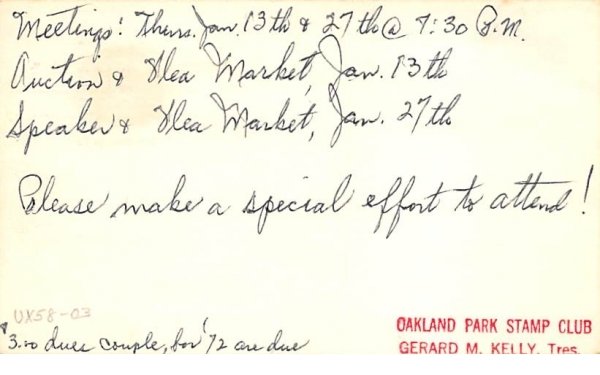 Meetings: Thurs. Jan. 13th & 27th @ 7:30 P.M.
Auction & Flea Market, Jan. 13th
Speaker & Flea Market, Jan. 27th
Please make a special effort to attend!
UX58-03
$3.00 dues couple, for '72 are due
OAKLAND PARK STAMP CLUB
GERARD M. KELLY, Tres.